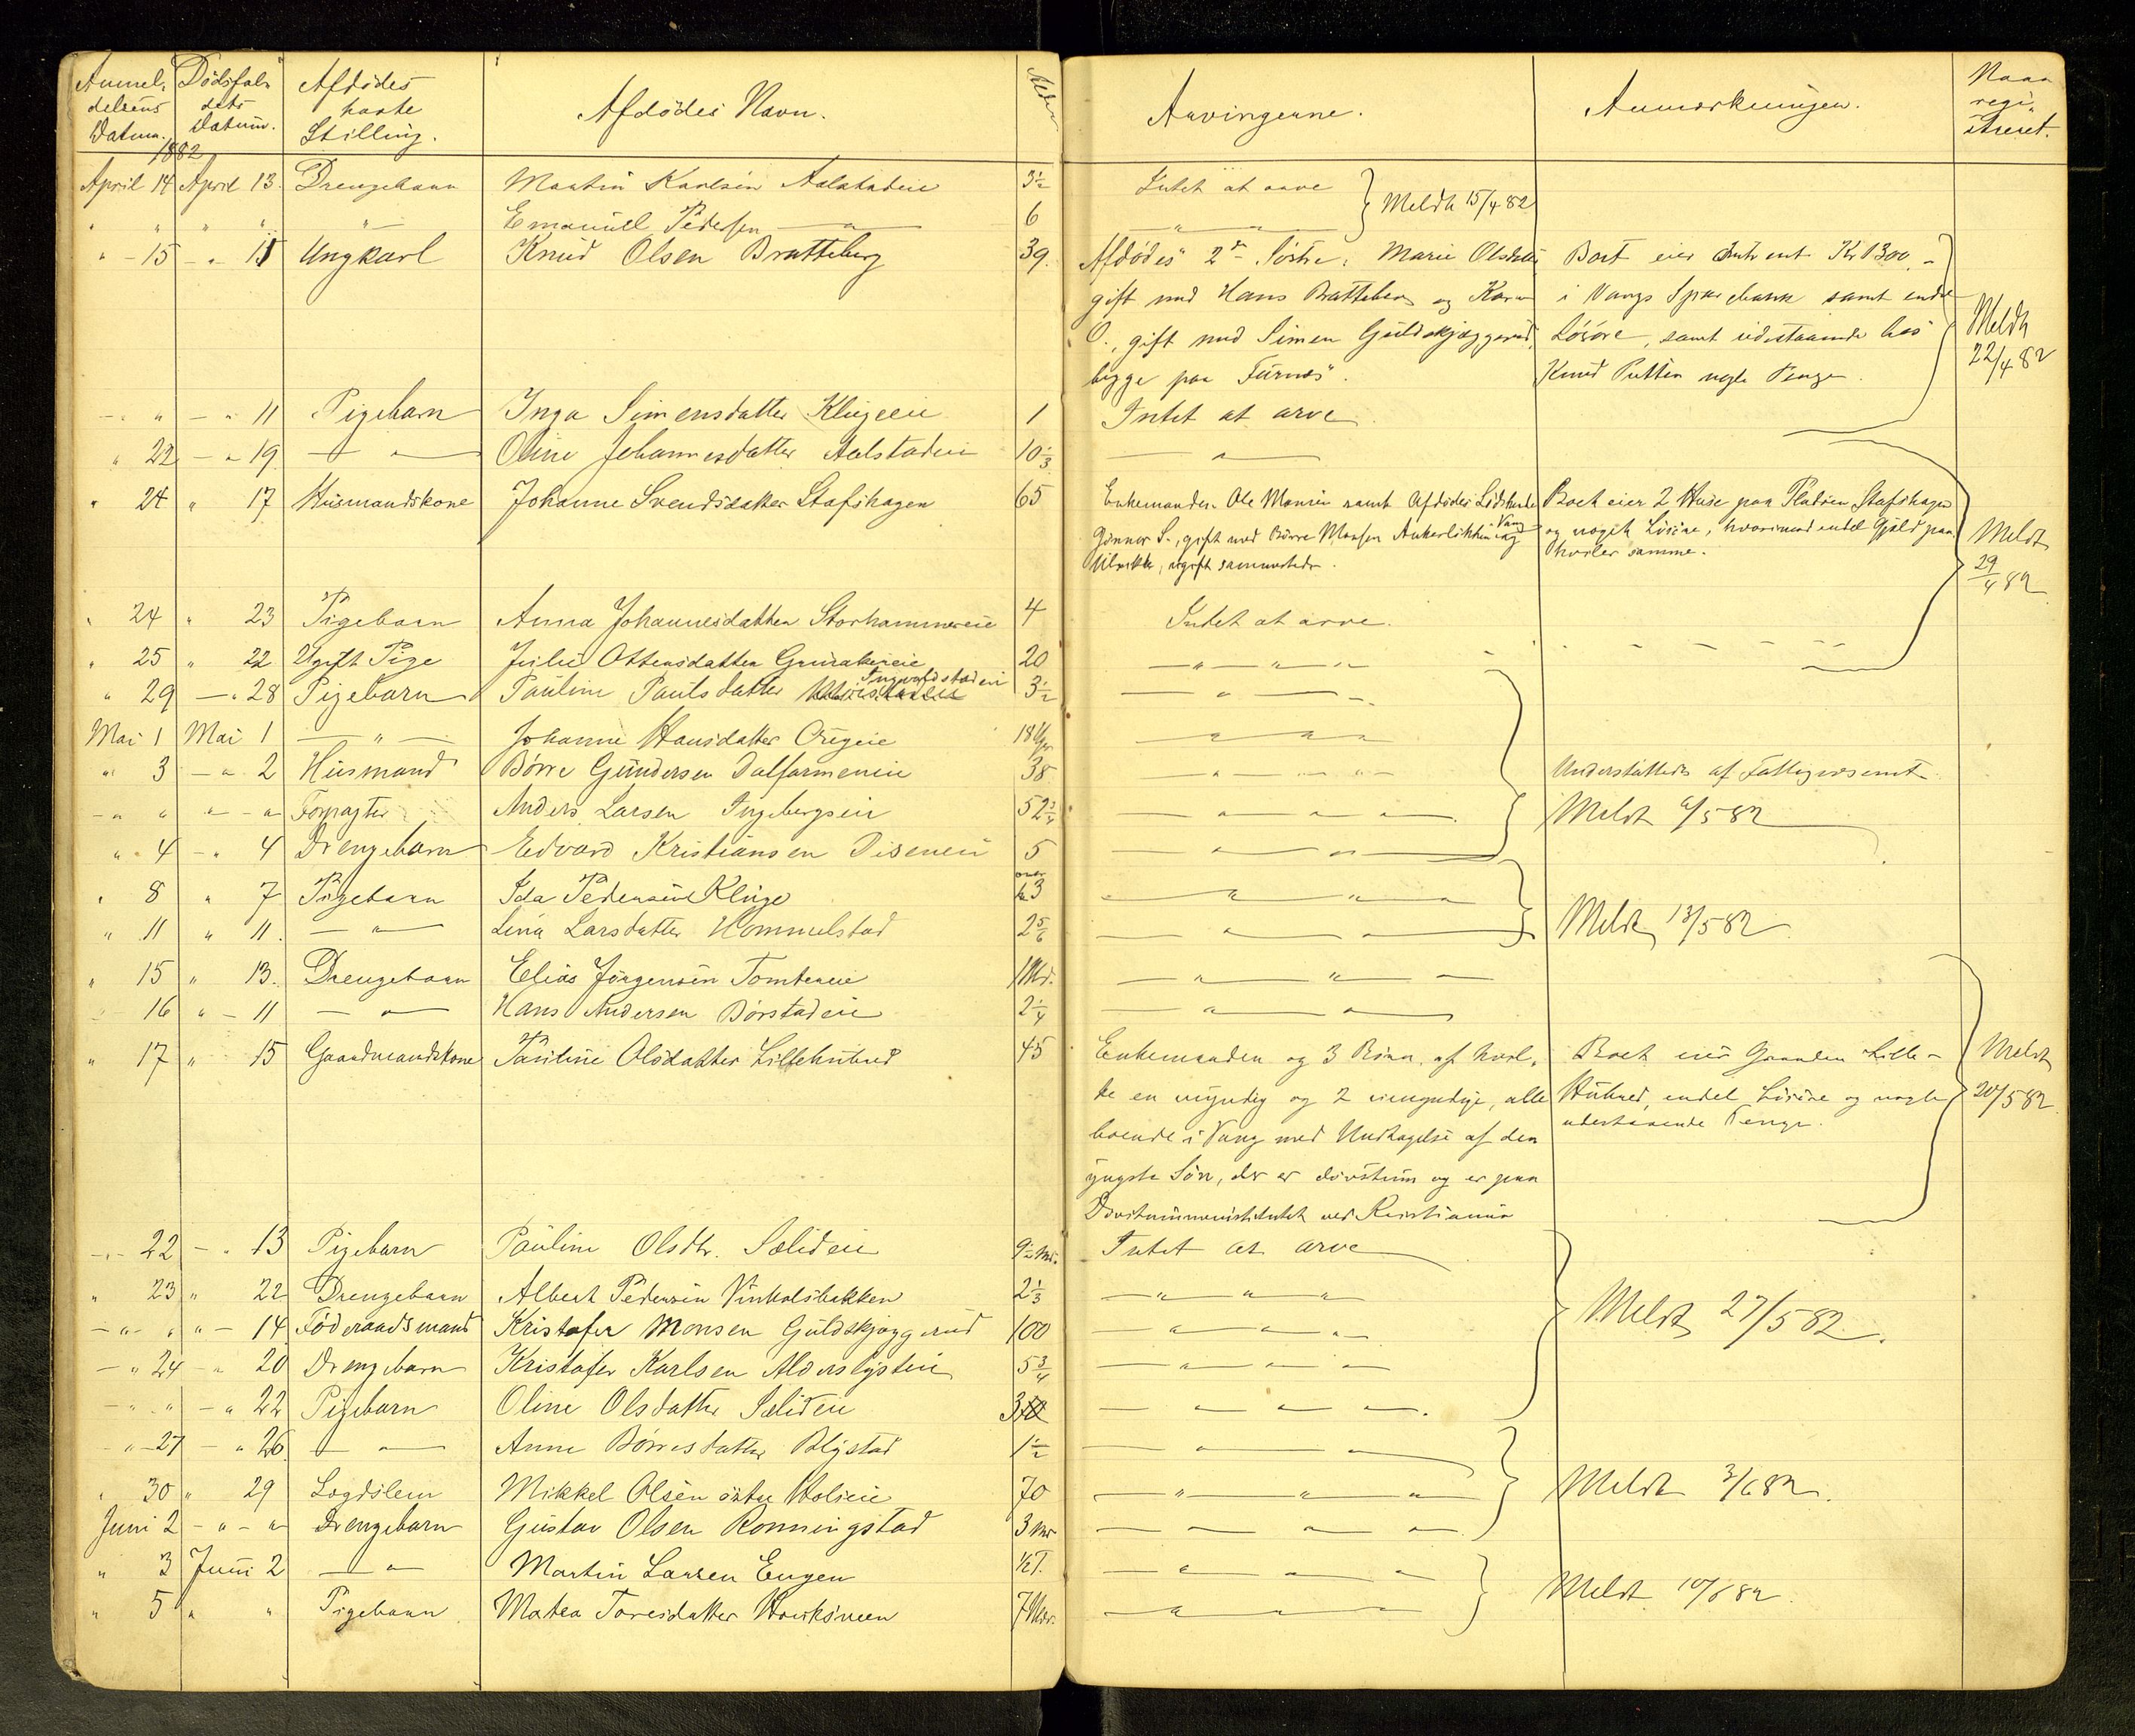 Anmel-
delsens
Datum.
Dødsfal-
dets
Datum.
Afdödes
havte
Stilling.
Afdödes Navn.
Alder
Arvingerne.
Anmærkninger.
Naar
regi-
streret.
1882
April 14 April 13. Drengebarn Martin Karlsen Aalstadeie 3½ Intet at arve
" " " " " Emanuel Pedersen — " — 6 — " — Meldt 15/4 82
" - 15 - " 15 Ungkarl Knud Olsen Bratteberg 39. Afdödes 2de Söstre: Marie Olsdatter Boet eier Kr 1300,-
gift med Hans Bratteberg og Karen i Vangs Sparebank samt endel
O., gift med Simen Guldskjæggerud, Lösöre, samt udestaaende hos Meldt
begge paa Furnes. Knud Putten nogle Penge. 22/4 82
- " - " 11 Pigebarn Inga Simensdatter Klugeeie 1 Intet at arve
" 22 - " 19 — " — Oline Johannesdatter Aalstadeie 10⅓ — " —
" 24 " 17 Husmandskone Johanne Svendsdatter Stafshagen 65 Enkemanden Ole Monsen samt Afdödes Södskende Boet eier 2 Huse paa Pladsen Stafshagen
Gunnor S., gift med Börre Monsen Ankerlökken i Vang og og nogle Lösöre, hvorimod endel Gjæld paa- Meldt
ugift sammesteds. hviler samme. 29/4 82
" 24 " 23 Pigebarn Anna Johannesdatter Storhammereie 4 Intet at arve.
" 25 " 22 Ugift Pige Julie Ottersdatter 20 — " — " — " —
" 29 - " 28 Pigebarn Pauline Paulsdatter Ingvoldstadeie 3½ — " —
Mai 1 Mai 1 — " — Johanne Hansdatter 18 Uger — " " "
" 3 - " 2 Husmand Börre Gundersen Dalfarmeneie 38 — " — " " — Understöttedes af Fattigvæsenet
- " " " - " Forpagter Anders Larsen Ingebergseie 52¾ — " " " — Meldt 6/5 82
" 4 - " 4 Drengebarn Edvard Kristiansen Diseneie 5 — " — " —
" 8 " 7 Pigebarn Ida Pedersdtr Kluge 3 — " " " —
" 11 " 11. — " — Lina Larsdatter Hommelstad 2⅚ — " — " — Meldt 13/5 82
" 15 " 13. Drengebarn Elias Jörgensen Tomtereie 1 Md. — " — " —
" 16 " - 11 — " — Hans Andersen Börstadeie 2¼ — " — " —
" 17 " 15 Gaardmandskone Pauline Olsdatter Lillehubred 45 Enkemanden og 3 Börn, af hvil- Boet eier Gaarden Lille- Meldt
ke en myndig og 2 umyndige, alle Hubred, endel Lösöre og nogle 20/5 82
boende i Vang med Undtagelse af den udestaaende Penge.
yngste Sön, der er dövstum og er paa
Dövstummeinstitutet ved Kristiania
- " 22 - " 13 Pigebarn Pauline Olsdtr. Sælideie 9½ Md. Intet at arve
" 23 " 22 Drengebarn Albert Pedersen Vinkolsbakken 2⅓ — " " " —
- " " " - 14 Föderaadsmand Kristofer Monsen Guldskjæggerud 100 — " " " —
- " 24 - " 20 Drengebarn Kristofer Karlsen Alderslysteie 5¾ — " " " — Meldt 27/5 82.
- " " - " 22 Pigebarn Oline Olsdatter Sælideie 3 — " " " —
- " 27 - " 26. — " — Anne Börresdatter Blystad 1½ — " — " —
" 30 " 29 Lægdslem Mikkel Olsen östre Holieie 70 — " " " — Meldt 3/6 82.
Juni 2 - " - " Drengebarn Gustav Olsen Ronningstad 3 Mdr — " " " —
" 3 Juni 2 — " — Martin Larsen Engen ½ T. — " " " —
" 5 " " Pigebarn Matea Toresdatter 7 Mdr. — " " " — Meldt 10/6 82.